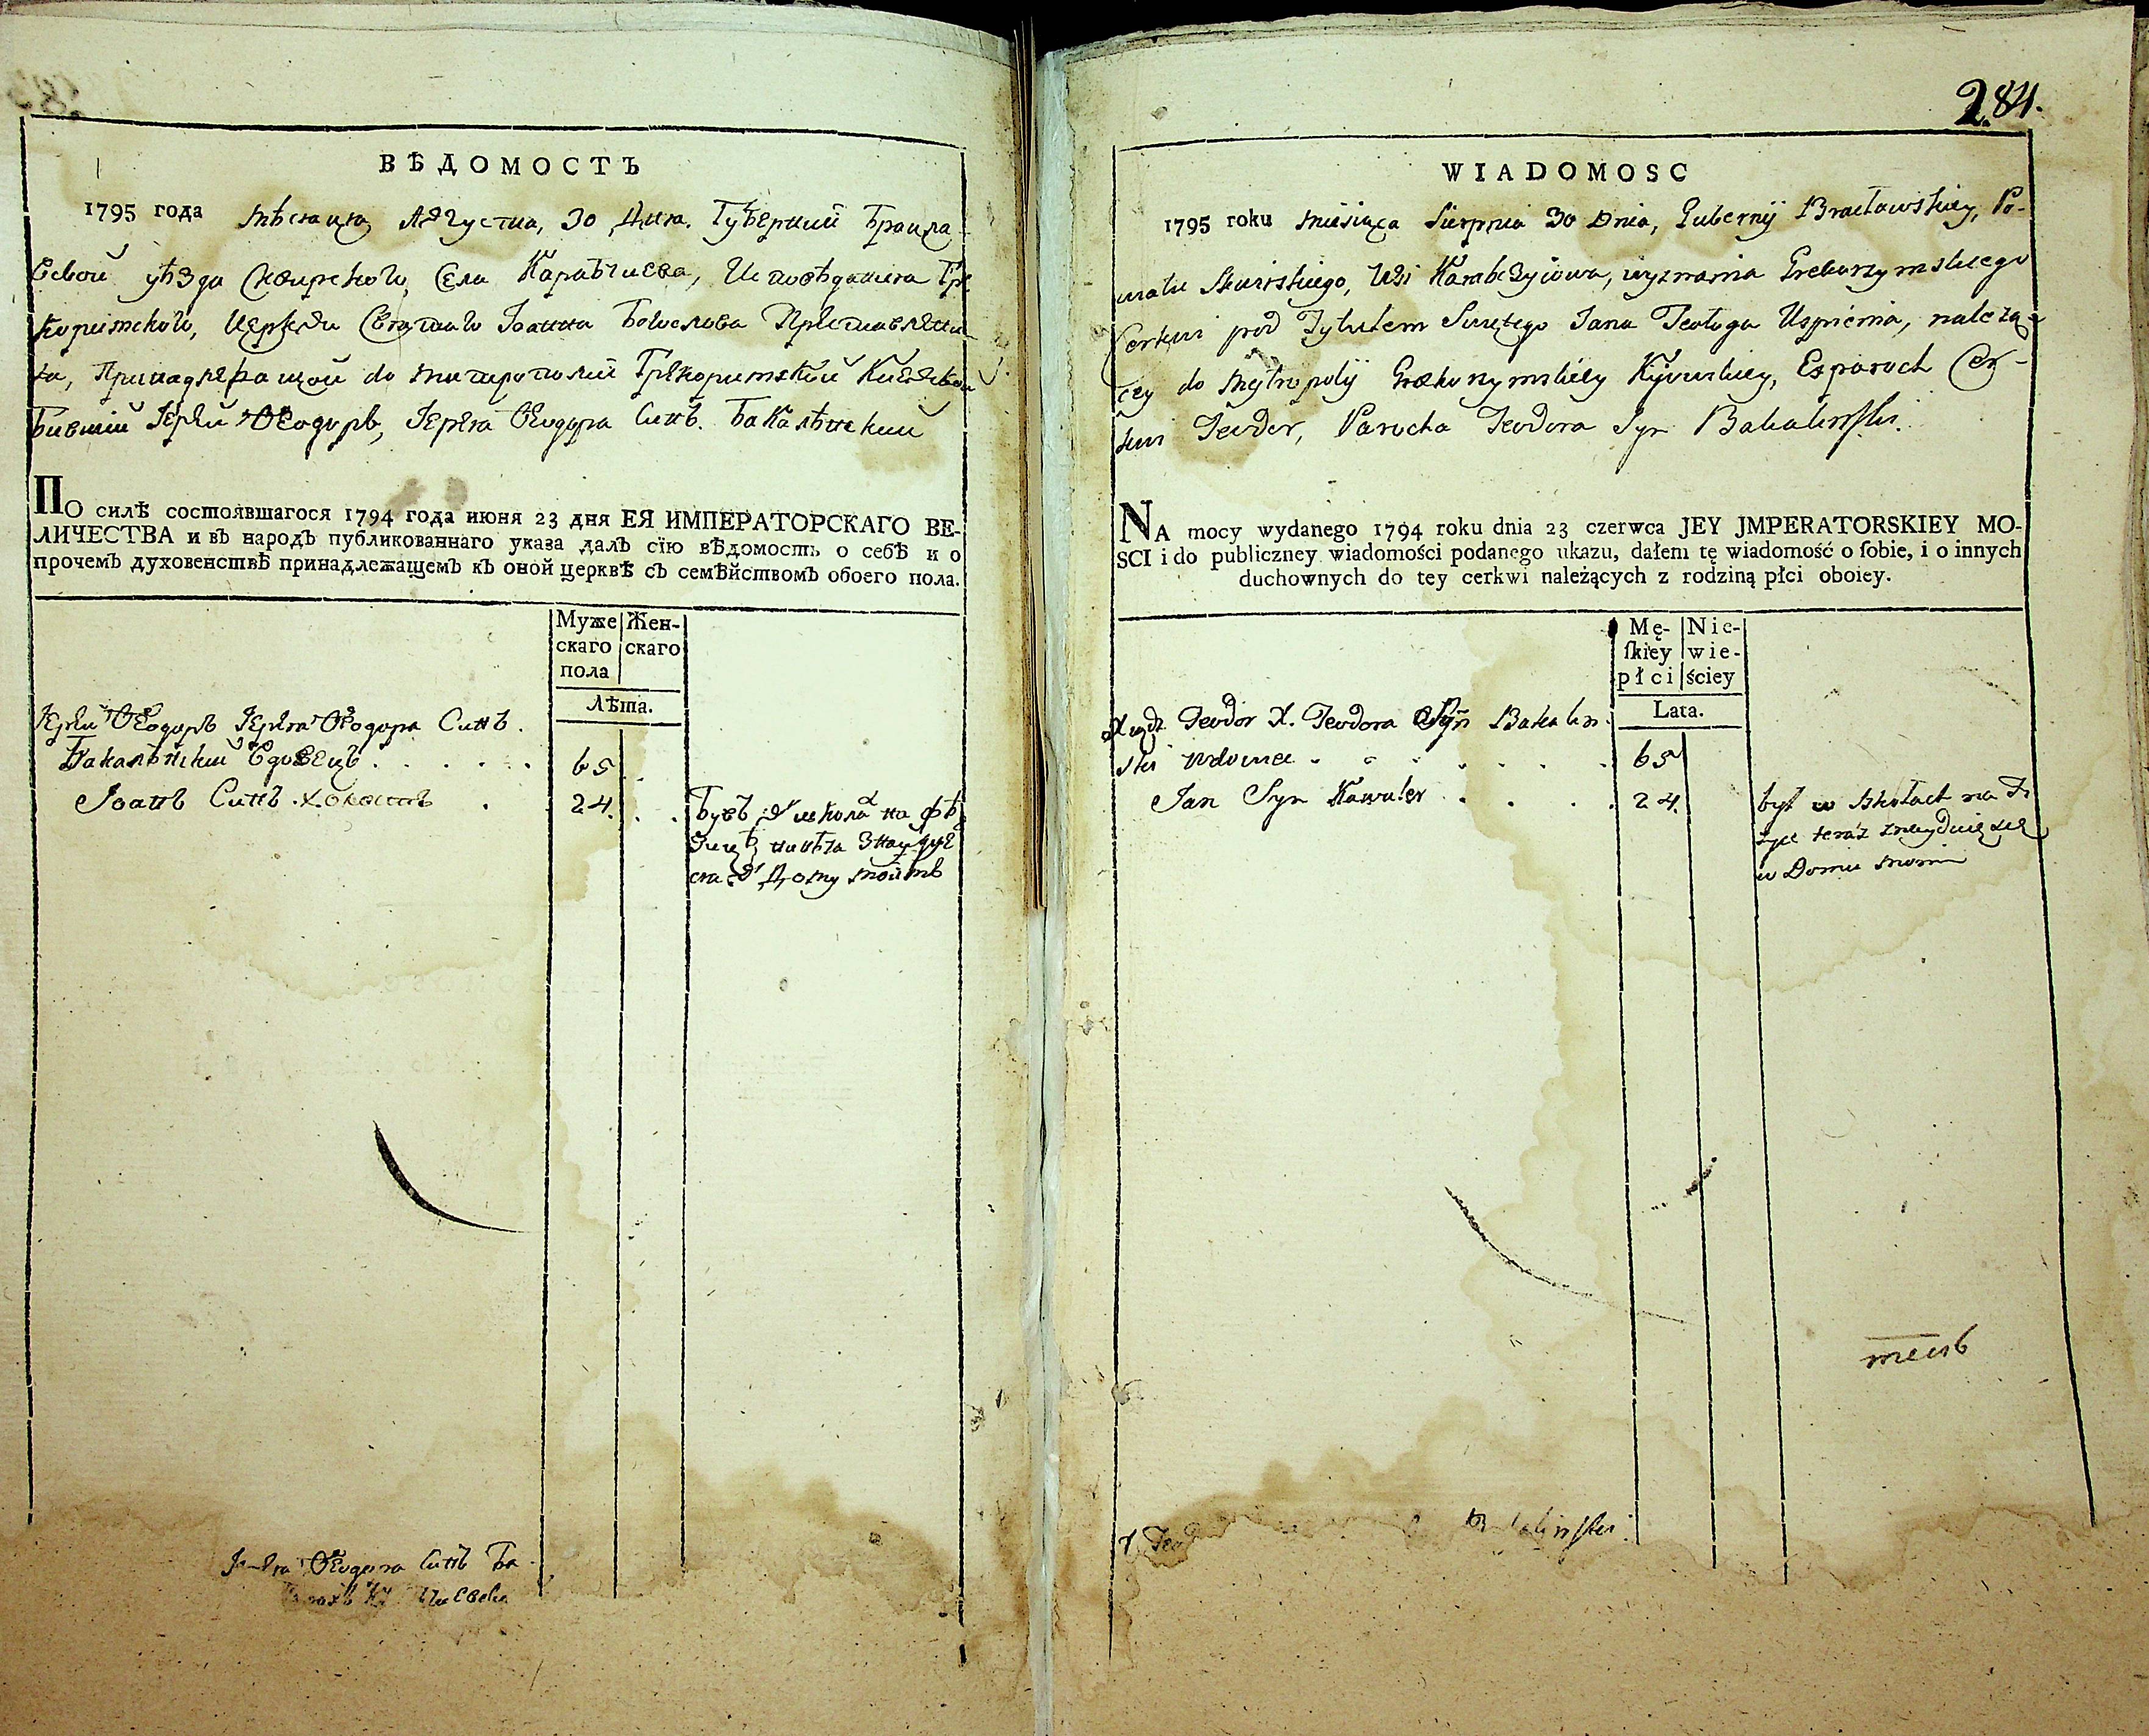 ВѢДОМОСТЬ
1795 года мѣсяця Августа, 30 Дня. Губернии Брацла-
вской уѣзда Сквирского, Села Карабчиева, Исповѣдания Гре-
коримского, Церкви Святаго Іоанна Богослова Преставления
Принадлежащой до митрополии Грекоримской Киевской
Бившій Іерей Ѳеодоръ, Іерея Ѳеодора Синъ. Бакалѣнский
ПО силѣ состоявшагося 1794 года июня 23 дня ЕЯ ИМПЕРАТОРСКАГО ВЕ-
ЛИЧЕСТВА и въ народъ публикованнаго указа далъ сїю вѣдомость о себѣ и о
прочемъ духовенствѣ принадлежащемъ къ оной церквѣ съ семѣйствомъ обоего пола.
Муже Жен-
скаго скаго
пола
Лѣта.
Іерей Ѳеодоръ Іерея Ѳеодора Синъ.
Бакалѣнский Вдовецъ . . . . . . 65
Іоанъ Синъ . 24.
Бувъ у школа на
нинѣ знайдуе
ся у Дому моимъ
Ѳеодора Синъ Ба
284.
WIADOMOSC
1795 roku miesiąca Sierpnia 30 Dnia, Gubernij Bracławskiey, Po-
wiatu Skwirskiego, Wsi Karabczyiowa, wyznania Grekorzymskiego
Cerkwi pod Tytułem Swiętego Jana Teologa Uspienia, należą-
cey do Metropolij Grekorzymskiey Kijowskiey, Exparoch Cer-
kwi Teodor, Parocha Teodora Syn Bakalinski.
NA mocy wydanego 1794 roku dnia 23 czerwca JEY JMPERATORSKIEY MO-
SCI i do publiczney wiadomości podanego ukazu, dałem tę wiadomość o ſobie, i o innych
duchownych do tey cerkwi należących z rodziną płci oboiey.
Mę- Nie-
ſkiey wie-
płci ściey
Lata.
Xiądz Teodor X. Teodora Syn Bakalin-
ski wdowiec . . . . . . . 65
Jan Syn Kawaler . . . . 24.
był w szkołach na
teraz znayduię się
w Domu moim